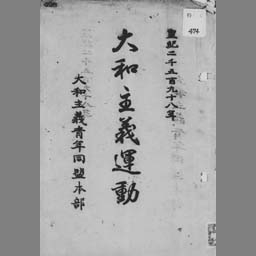 皇紀二千五百九十八年
大和主義運動
大和主義青年同盟本部
474